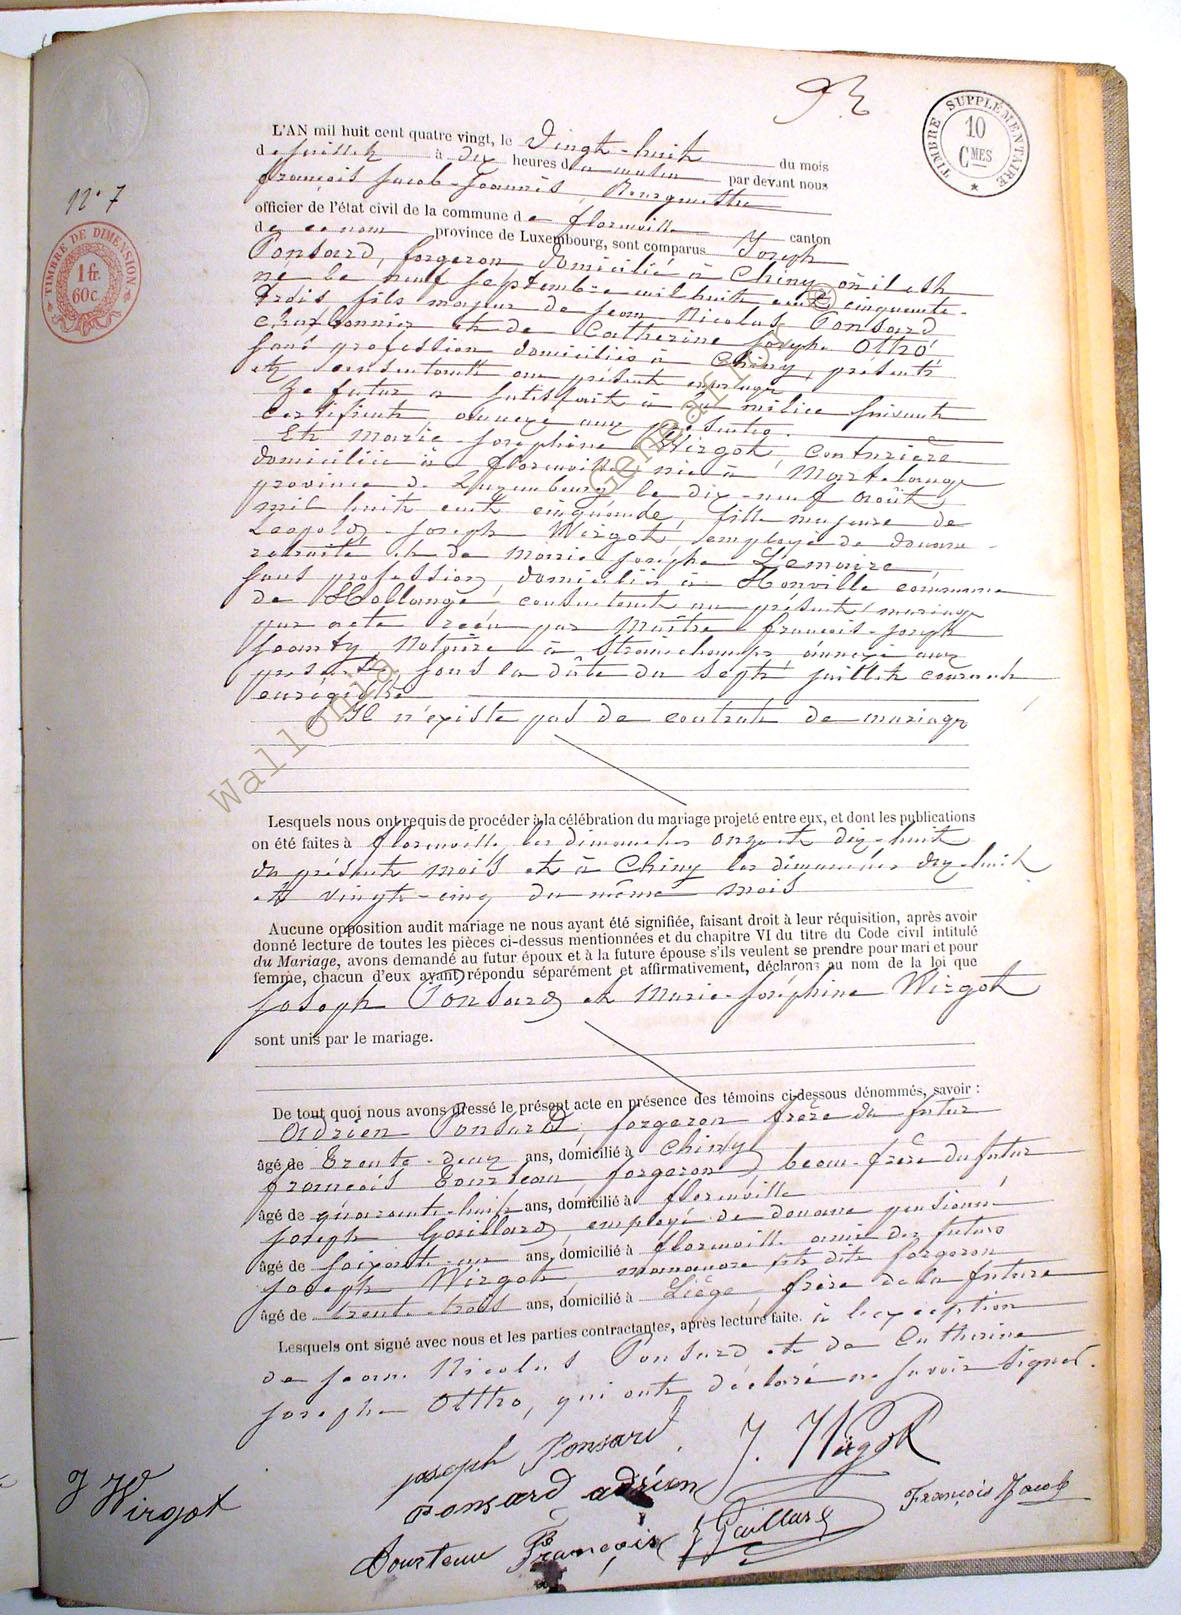 N° 7
TIMBRE DE DIMENSION
1 fr.
60 c.
TIMBRE SUPPLÉMENTAIRE
10
CMES
L'AN mil huit cent quatre vingt, le Vingt-huit du mois
de Juillet à dix heures du matin par devant nous
François Jacob-Joannès, Bourgmestre
officier de l'état civil de la commune de Florenville canton
de ce nom province de Luxembourg, sont comparus Joseph
Ponsard, forgeron domicilié à Chiny où il est
né le neuf septembre mil huit cent cinquante-
trois fils majeur de Jean Nicolas Ponsard
charbonnier et de Catherine Josephe Ottho
sans profession domiciliés à Chiny, présents
et consentants au présent mariage
Le futur a satisfait à la milice suivant
certificat annexé aux présentes.
Et Marie-Joséphine Wirgot, couturière
domiciliée à Florenville née à Martelange
province de Luxembourg le dix-neuf août
mil huit cent cinquante, fille majeure de
Léopold-Joseph Wirgot, employé de douane
retraité et de Marie-Josephe Lemaire,
sans profession, domiciliés à Honville commune
de Hollange, consentant au présent mariage
par acte reçu par Maître François-Joseph
Jeanty Notaire à Strainchamps, annexé aux
présentes sous la date du sept juillet courant
enrégistré
Il n'existe pas de contrat de mariage
Lesquels nous ont requis de procéder à la célébration du mariage projeté entre eux, et dont les publications
on été faites à Florenville les dimanches onze et dix-huit
du présent mois et à Chiny les dimanches dix-huit
et vingt-cinq du même mois
Aucune opposition audit mariage ne nous ayant été signifiée, faisant droit à leur réquisition, après avoir
donné lecture de toutes les pièces ci-dessus mentionnées et du chapitre VI du titre du Code civil intitulé
du Mariage, avons demandé au futur époux et à la future épouse s'ils veulent se prendre pour mari et pour
femme, chacun d'eux ayant répondu séparément et affirmativement, déclarons au nom de la loi que
Joseph Ponsard et Marie-Joséphine Wirgot
sont unis par le mariage.
De tout quoi nous avons dressé le présent acte en présence des témoins ci-dessous dénommés, savoir :
Adrien Ponsard, forgeron frère du futur
âgé de trente-deux ans, domicilié à Chiny
François Tourteau, forgeron, beau-frère du futur
âgé de quarante-huit ans, domicilié à Florenville
Joseph Gaillard, employé de douane pensionné
âgé de soixante-un ans, domicilié à Florenville ami des futurs
Joseph Wirgot, manœuvre dit forgeron
âgé de trente-trois ans, domicilié à Liège, frère de la future
Lesquels ont signé avec nous et les parties contractantes, après lecture faite. à l'exception
de Jean Nicolas Ponsard et de Catherine
Josephe Ottho, qui ont déclaré ne savoir signer.
joseph Ponsard J. Wirgot
Ponsard adrien
J Wirgot
François Jacob
Tourteau François J Gaillard
WalloniaGenealogy